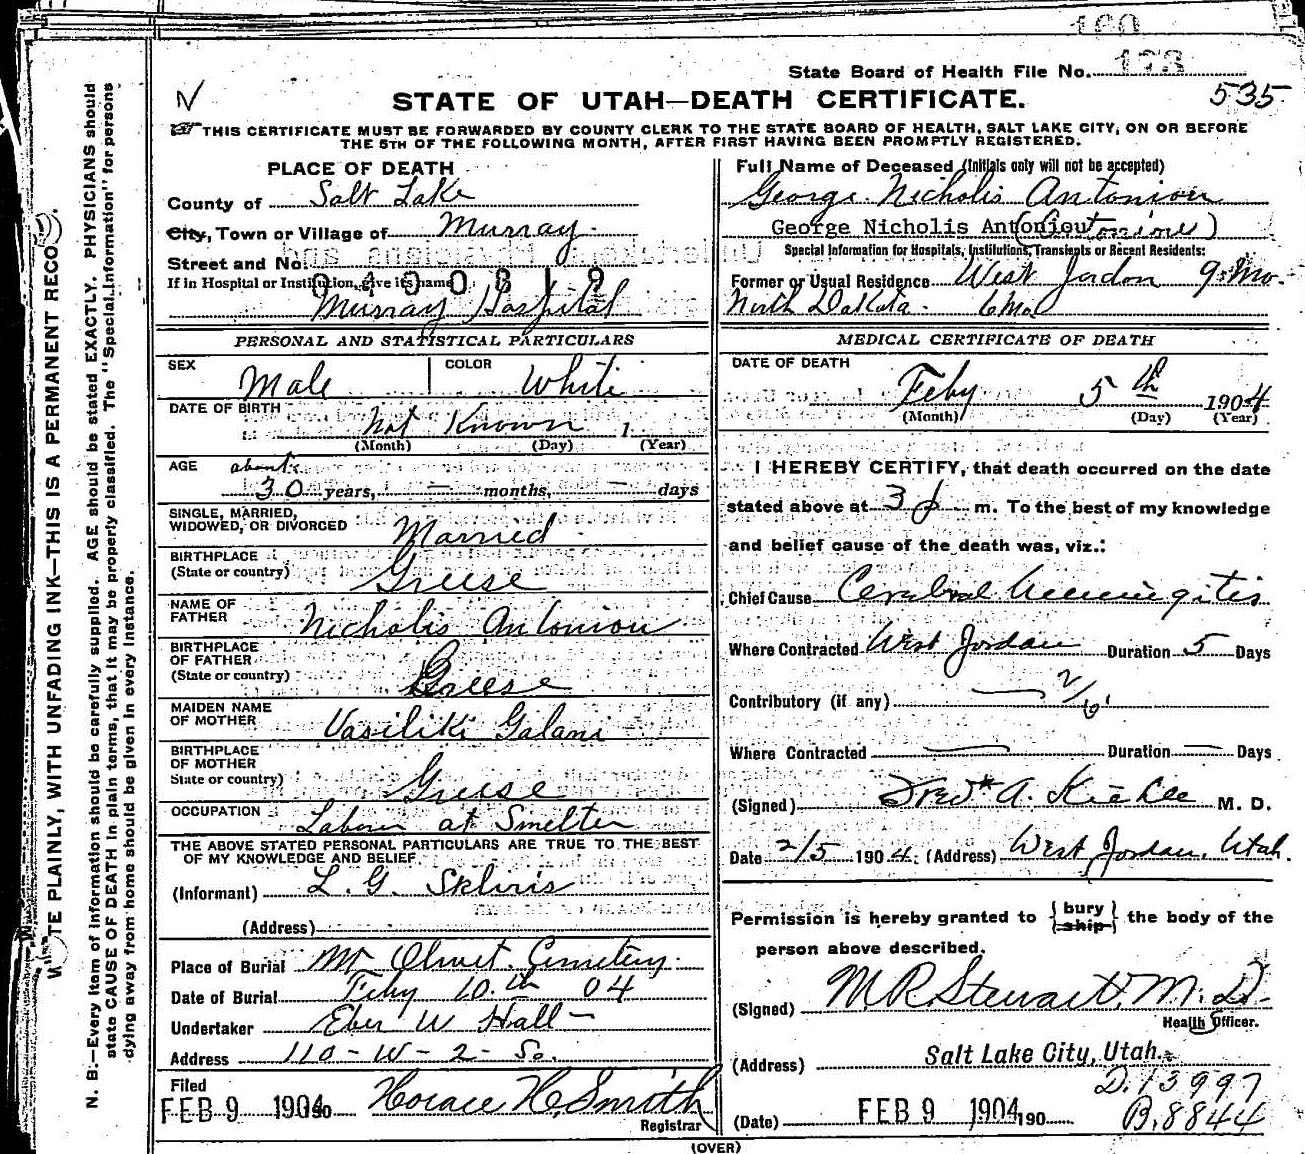 160
173
State Board of Health File No.
535
STATE OF UTAH—DEATH CERTIFICATE.
THIS CERTIFICATE MUST BE FORWARDED BY COUNTY CLERK TO THE STATE BOARD OF HEALTH, SALT LAKE CITY, ON OR BEFORE
THE 5TH OF THE FOLLOWING MONTH, AFTER FIRST HAVING BEEN PROMPTLY REGISTERED.
PLACE OF DEATH
County of Salt Lake
City, Town or Village of Murray.
Street and No.
If in Hospital or Institution, give its name
0 4 3 0 8 1 9
Murray Hospital
PERSONAL AND STATISTICAL PARTICULARS
SEX Male COLOR White
DATE OF BIRTH Not Known 1
(Month) (Day) (Year)
AGE about
30 years, — months, — days
SINGLE, MARRIED,
WIDOWED, OR DIVORCED Married
BIRTHPLACE
(State or country) Greese
NAME OF
FATHER Nicholis Antoniou
BIRTHPLACE
OF FATHER
(State or country) Greese
MAIDEN NAME
OF MOTHER Vasiliki Galani
BIRTHPLACE
OF MOTHER
State or country) Greese
OCCUPATION Labour at Smelter
THE ABOVE STATED PERSONAL PARTICULARS ARE TRUE TO THE BEST
OF MY KNOWLEDGE AND BELIEF.
(Informant) L. G. Skliris
(Address)
Place of Burial Mt Olivet Cemetery.
Date of Burial Feby 10th 04
Undertaker Eber W Hall —
Address 110 - W - 2 - So.
Filed
FEB 9 1904 190 Horace H. Smith
Registrar
Full Name of Deceased (Initials only will not be accepted)
George Nicholis Antoniou
George Nicholis Antoniou
Special Information for Hospitals, Institutions, Transients or Recent Residents:
Former or Usual Residence West Jordon 9 Mo.
North Dakota. 6 Mo
MEDICAL CERTIFICATE OF DEATH
DATE OF DEATH
Feby 5th 1904
(Month) (Day) (Year)
I HEREBY CERTIFY, that death occurred on the date
stated above at 3 p m. To the best of my knowledge
and belief cause of the death was, viz.:
Chief Cause Cerebral Meningitis
Where Contracted West Jordan Duration 5 Days
Contributory (if any) —
Where Contracted — Duration — Days
(Signed) A. M. D.
Date 2/5 1904. (Address) West Jordan, Utah.
Permission is hereby granted to { bury ship } the body of the
person above described.
(Signed) M. R. Stewart, M. D.
Health Officer.
(Address) Salt Lake City, Utah.
D. 13997
(Date) FEB 9 1904 190 B. 8844
(OVER)
TE PLAINLY, WITH UNFADING INK—THIS IS A PERMANENT RECO
N. B.—Every item of information should be carefully supplied. AGE should be stated EXACTLY. PHYSICIANS should
state CAUSE OF DEATH in plain terms, that it may be properly classified. The "Special Information" for persons
dying away from home should be given in every instance.